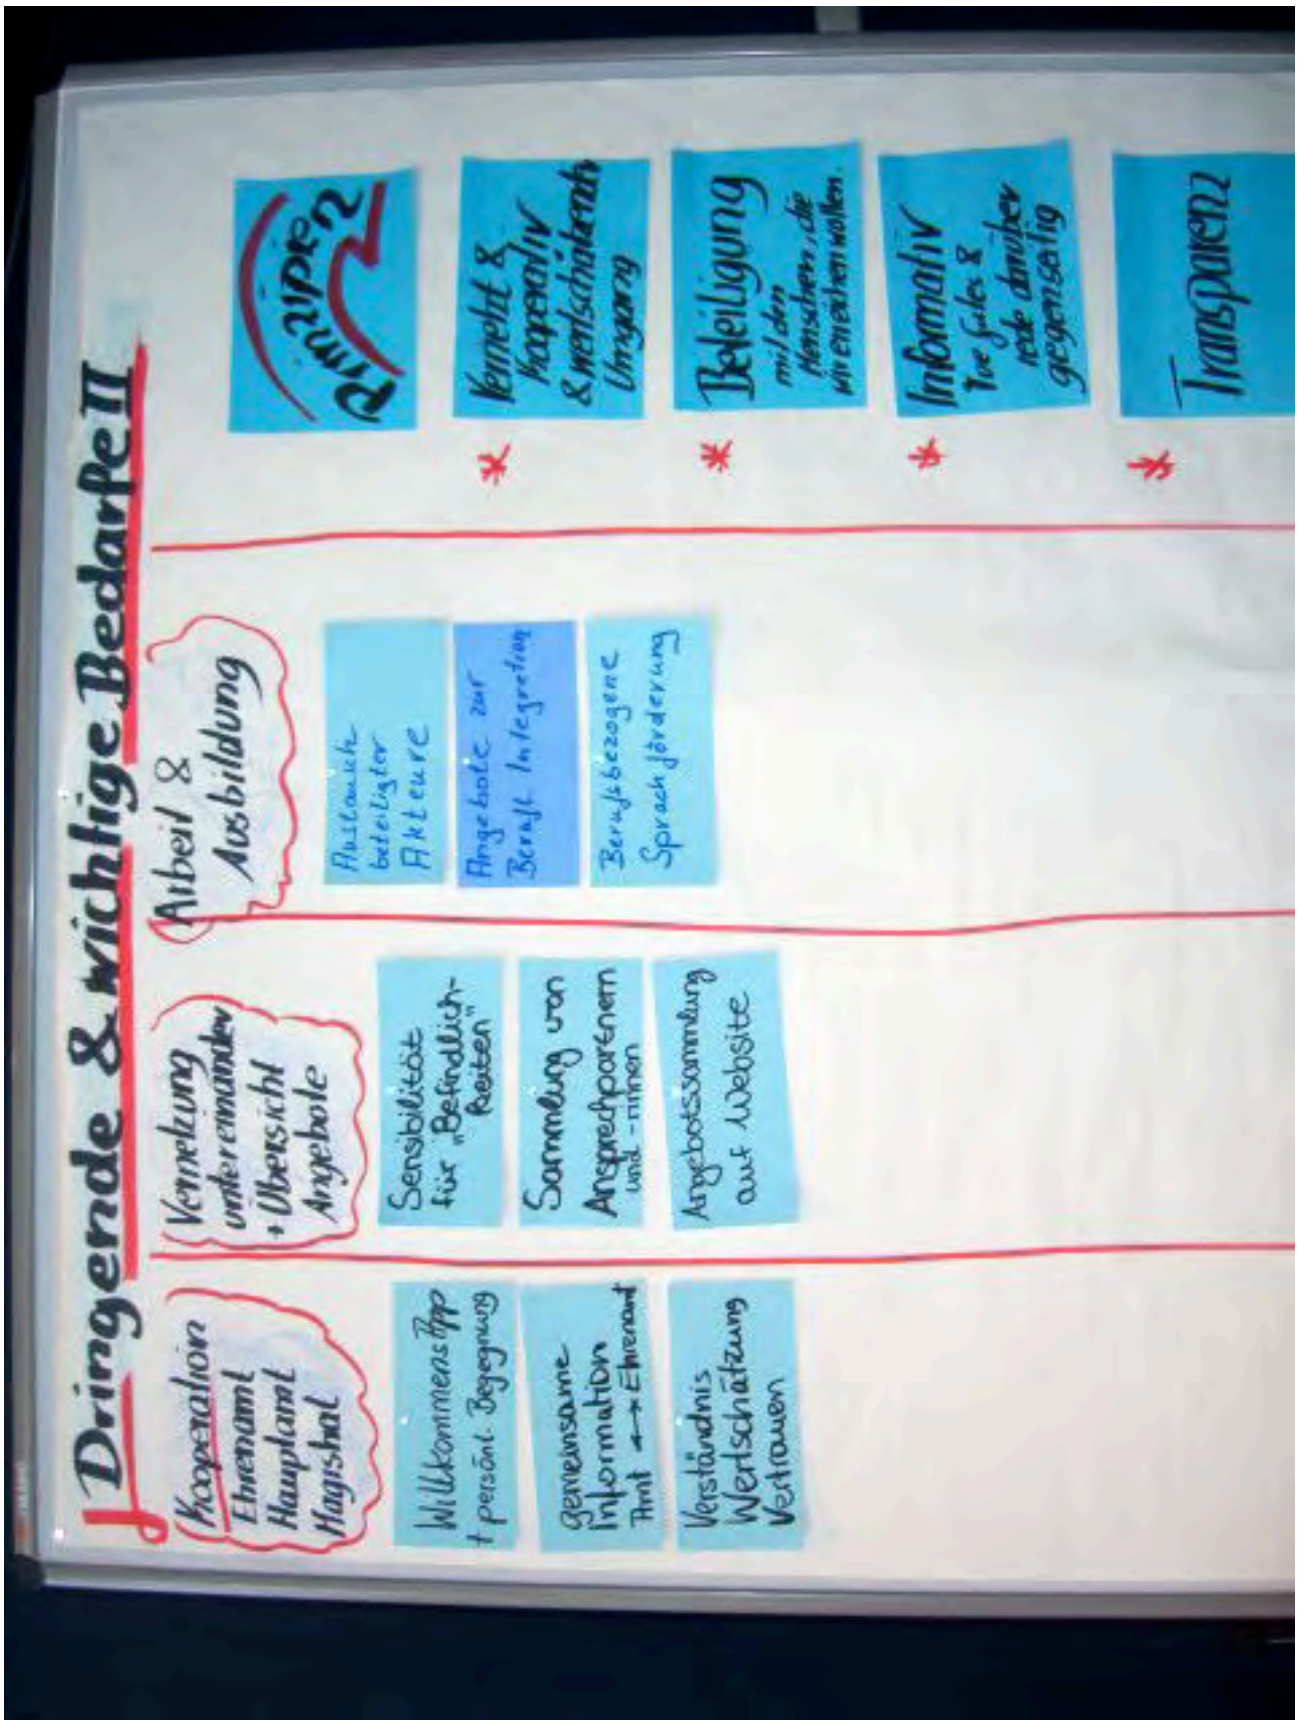 Dringende & wichtige Bedarfe II
Kooperation
Ehrenamt
Hauptamt
Magistrat
Willkommens App
+ persönl. Begegnung
gemeinsame
Information
Amt ↔ Ehrenamt
Verständnis
Wertschätzung
Vertrauen
Vernetzung
untereinander
+ Übersicht
Angebote
Sensibilität
für „Befindlich-
keiten"
Sammlung von
Ansprechpartnern
und -innen
Angebotssammlung
auf Website
Arbeit &
Ausbildung
Austausch
beteiligter
Akteure
Angebote zur
Berufl. Integration
Berufsbezogene
Sprachförderung
Prinzipien
* Vernetzt &
kooperativ
& wertschätzender
Umgang
* Beteiligung
mit den
Menschen, die
wir erreichen wollen.
* Informativ
Tue Gutes &
rede darüber
gegenseitig
* Transparenz